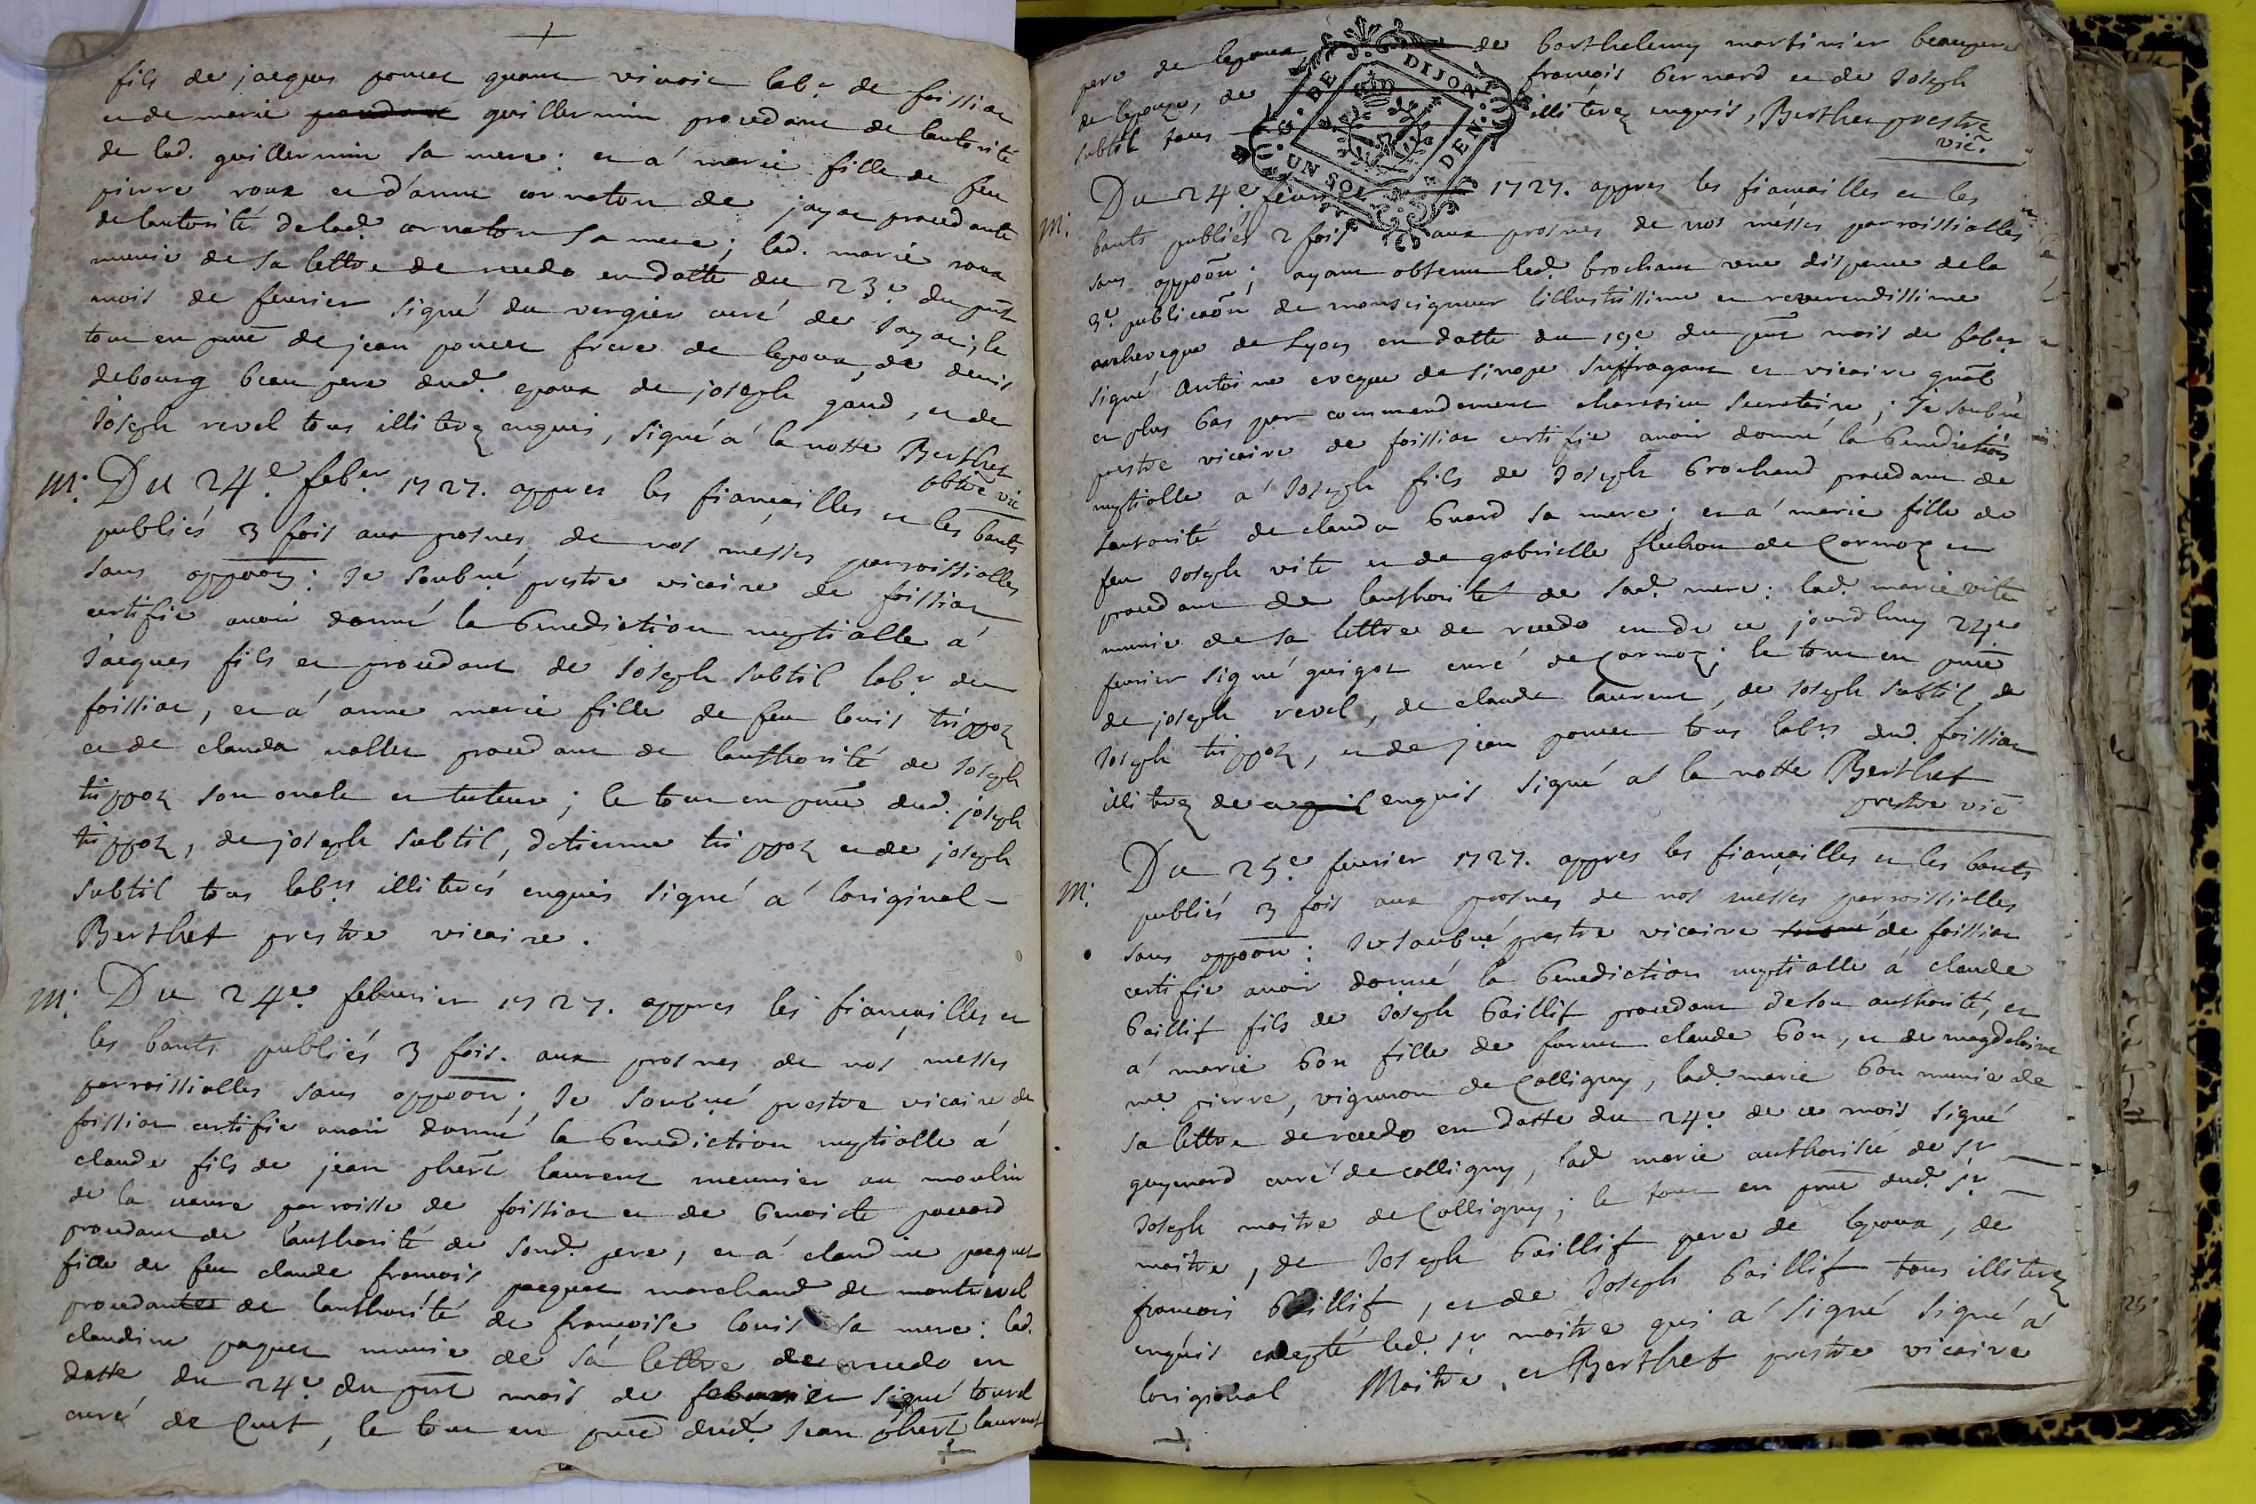 fils de jacques poncet quant vivoit labr de foissiat
et de marie procedant guillermin procedant de lautorité
de lad. guillermin sa mere : et a' marie fille de feu
pierre roux et d'anne cornaton de jayac procedante
de lautorité de lad. cornaton sa mere ; lad. marie roux
munie de sa lettre de recedo en datte du 23e. du pnt
mois de feurier signé du vergier curé de Jayac ; le
tout en pnce de jean poncet frere de lepoux, de denis
debourg beau pere dud. epoux de joseph gaud, et de
Joseph revel tous illiterez enquis, signé a' la notte Berthet
pbtre vic
M. Du 24.e feber 1727. appres les fiançailles et les bants
publiés 3 fois aux prosnes de nos messes parroissialles
sans oppoon : Je soubné prestre vicaire de foissiat
certifie avoir donné la benediction nuptialle a'
Jacques fils et procedant de Joseph subtil labr de
foissiat, et a' anne marie fille de feu louis trippoz
et de clauda vallet procedant de lauthorité de Joseph
trippoz son oncle et tuteur ; le tout en pnce dud. joseph
trippoz, de joseph subtil, detienne trippoz et de joseph
subtil tous labrs illiterés enquis signé a' loriginal —
Berthet prestre vicaire.
M. Du 24e. februrier 1727. appres les fiançailles et
les bants publiés 3 fois. aux prosnes de nos messes
parroissialles sans oppoon ; Je soubné prestre vicaire de
foissiat certifie avoir donné la benediction nuptialle a'
claude fils de jean phert laurent meunier au moulin
de la vavre parroisse de foissiat et de benoiste pauard
procedant de l'authorité de sond. pere, et a' claudine paquet
fille de feu claude françois paquet marchand de montrevel
procedantes de lauthorité de françoise louis sa mere : lad.
claudine paquet munie de sa lettre de recedo en
datte du 24.e du pnt mois de februrier signé tourel
curé de Cuet, le tout en pnce dud. jean phert laurent
pere de lepoux de barthelemy martinier beaupere
de lepoux, de françois bernard et de Joseph
subtil tous illiterez enquis, Berthet prestre
vic.
M. Du 24.e feurier 1727. appres les fiançailles et les
bants publiés 2 fois aux prosnes de nos messes parroissialles
sans oppoon ; ayant obtenu led. brochant une dispence de la
3e. publicaon de monseigneur lillustrissime et reverendissime
archeveque de Lyon en datte du 19e du pnt mois de feber
signé antoine eveque de sinope suffragant et vicaire gnal
et plus bas par commendement charesieu secretaire ; Je soubné
prestre vicaire de foissiat certifie avoir donné la benediction
nuptialle a' Joseph fils de Joseph brochand procedant de
lautorité de clauda buard sa mere ; et a' marie fille de
feu Joseph vite et de gabrielle fléchon de Cormoz et
procedant de lauthorité de sad. mere : lad. marie vite
munie de sa lettre de recedo en de ce jourdhuy 24e
feurier signé guigot curé de Cormoz ; le tout en pnce
de joseph revel, de claude laurent, de Joseph subtil, de
Joseph trippoz, et de jean poncet tous labrs dud. foissiat
illiterez de enquis signé a' la notte Berthet
prestre vic
M. Du 25.e feurier 1727. appres les fiançailles et les bants
publiés 3 fois aux prosnes de nos messes parroissialles
sans oppoon : Je soubné prestre vicaire de foissiat
certifie avoir donné la benediction nuptialle á claude
baillif fils de Joseph baillif procedant de son authorité, et
a' marie bon fille de farnet claude bon, et de magdeleine
me pierre, vigneron de Colligny, lad. marie bon munie de
sa lettre de recedo en datte du 24.e de ce mois signé
guymard curé de colligny, lad. marie authorisée de sr
Joseph maitre de Colligny ; le tout en pnce dud. sr
maitre, de Joseph baillif pere de lepoux, de
françois baillif, et de Joseph baillif tous illiterez
enquis excepté led. sr maitre qui a' signé signé a'
lorigional Maitre, et Berthet prestre vicaire
G. DE DIJON
UN SOL 4 DEN.